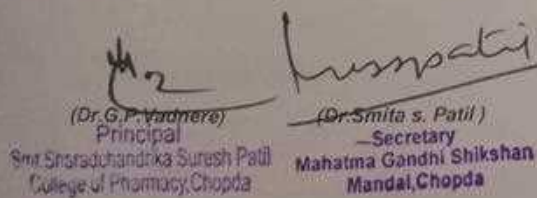 (Dr.G.P.Vadnere)
Principal
Smt Sharadchandrika Suresh Patil
College of Pharmacy,Chopda
(Dr.Smita s. Patil )
Secretary
Mahatma Gandhi Shikshan
Mandal,Chopda